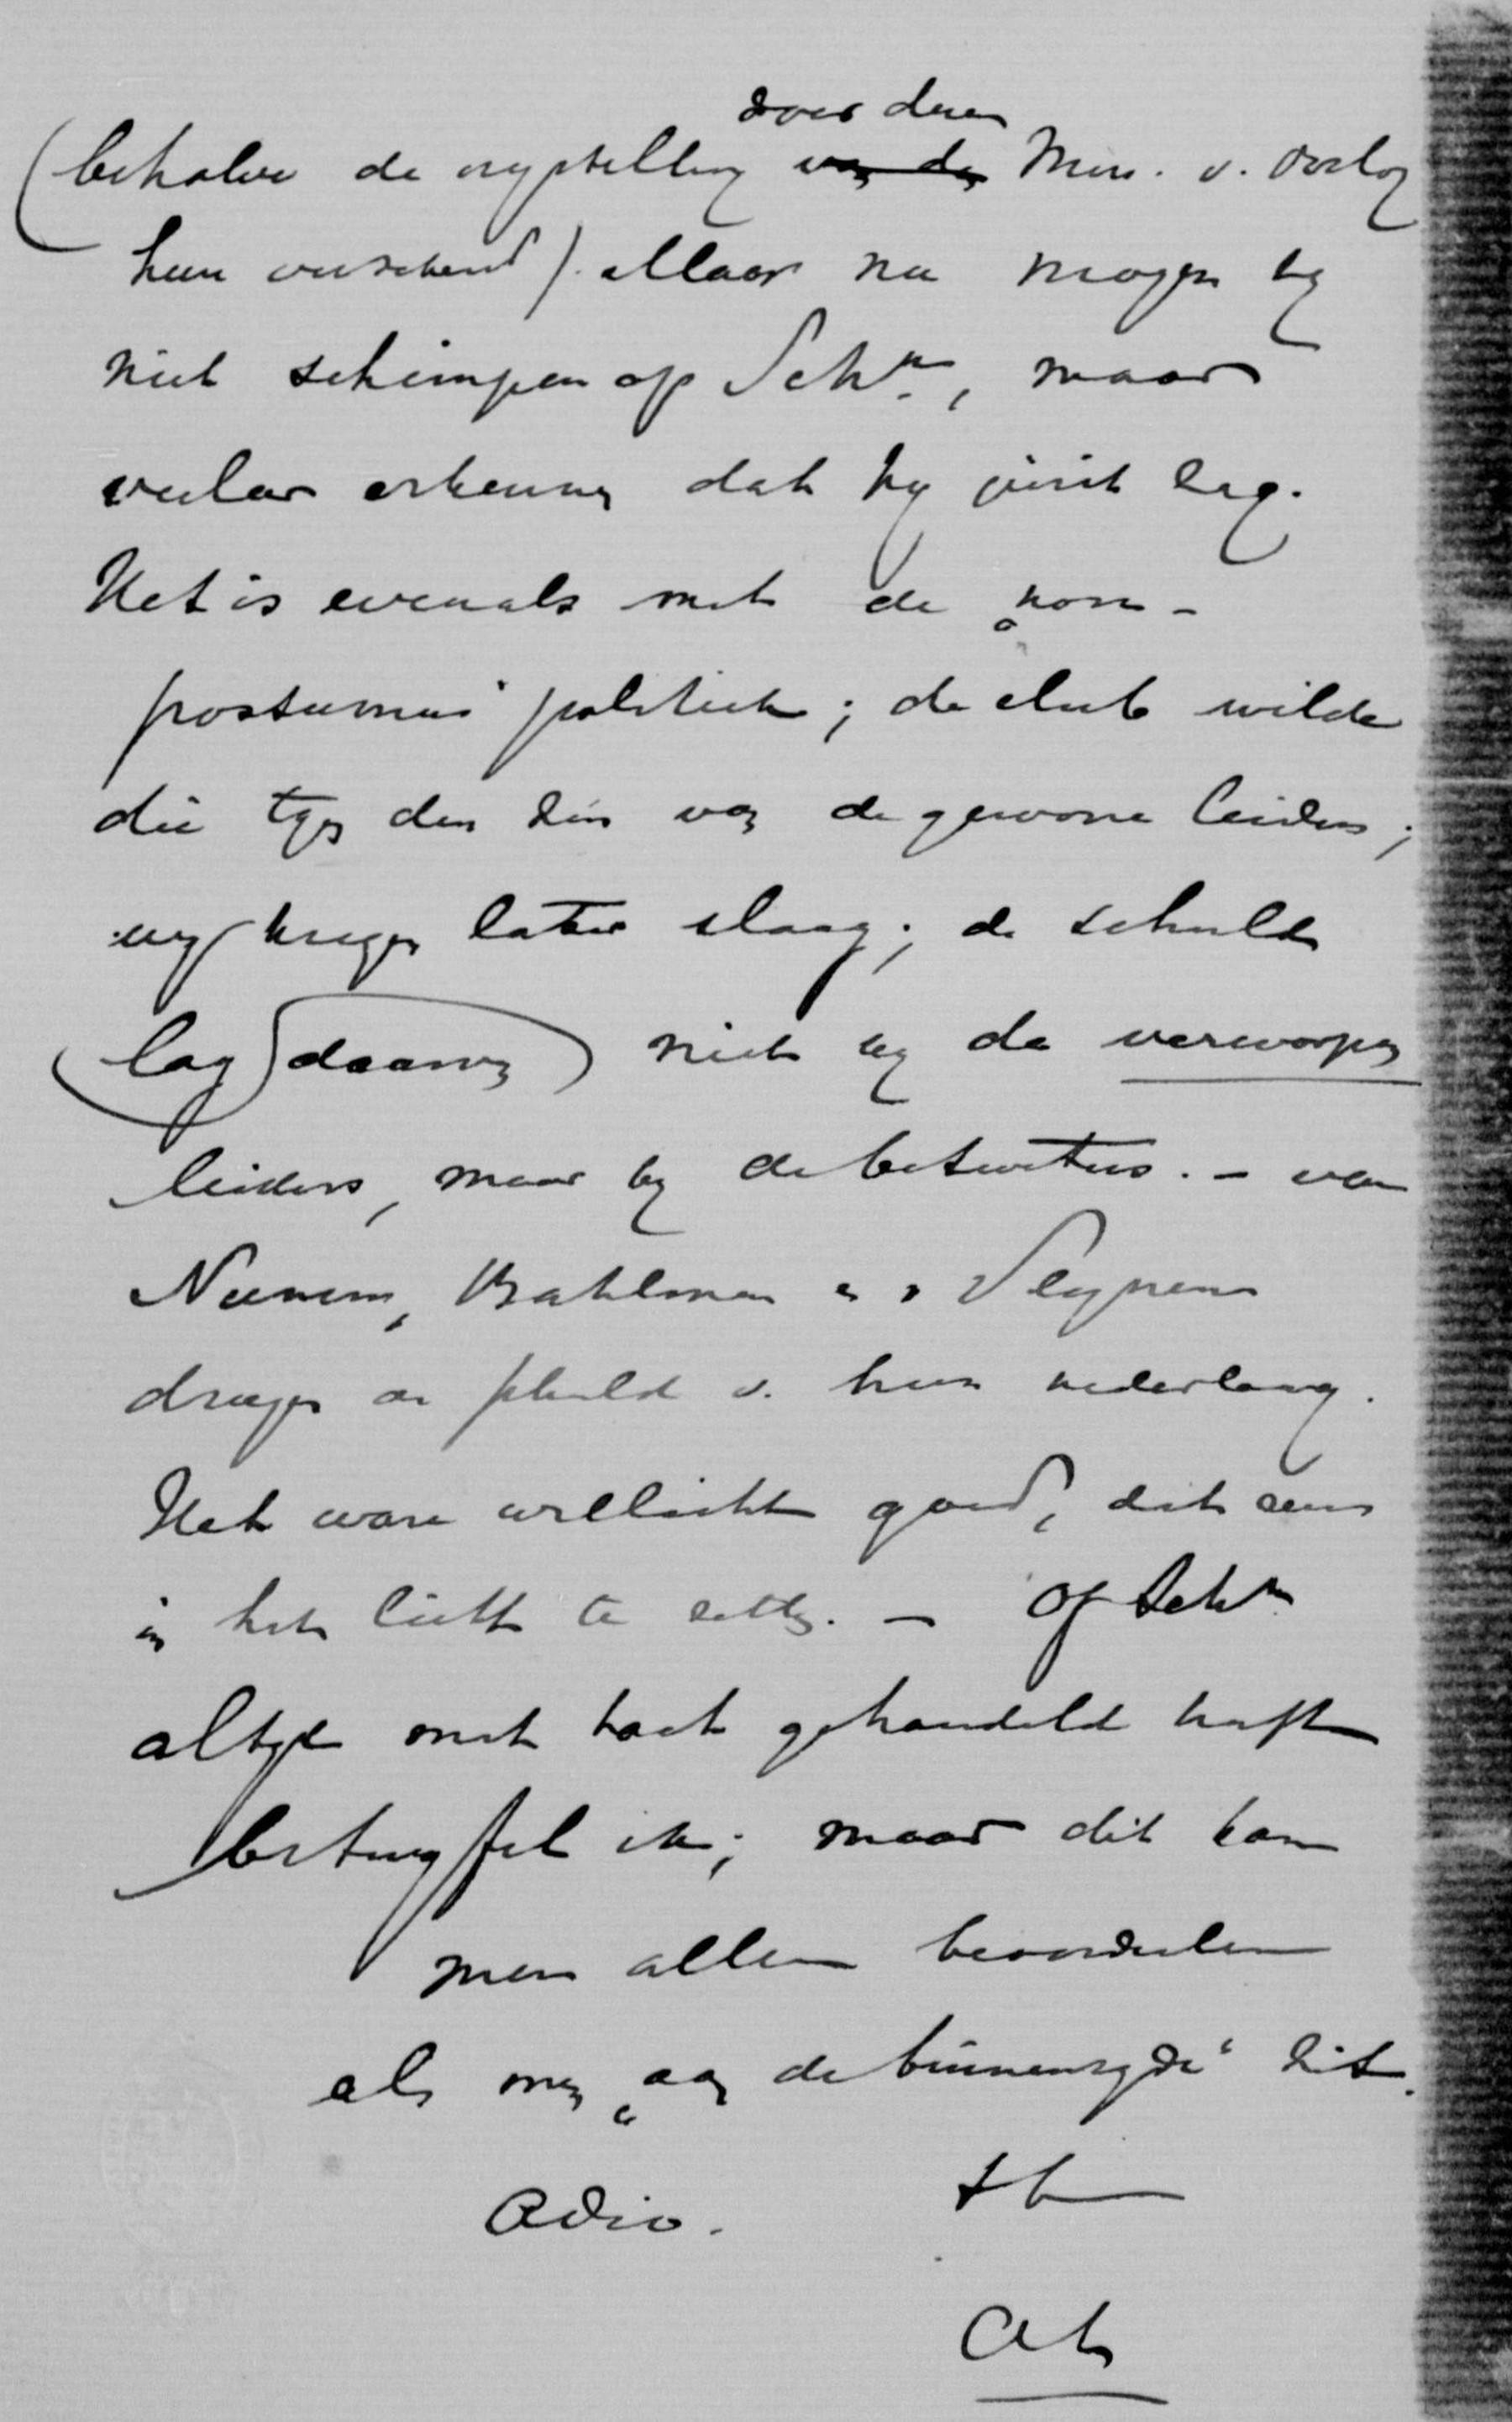 door den
(behalve de vrijstelling van de Min. v. Oorlog
hun verschend). Maar nu mogen zij
niet schimpen op Schn., maar
veeleer erkennen dat hij juist zag.
Het is evenals met de „non-
possumus" politiek; de club wilde
die tegen den zin van de gewone leiders;
wij kregen later slaag; de schuld
lag daarvan niet bij de verworpen
leiders, maar bij de betweters. - van
Nunen, Bahlman en v Vlijmen
dragen de schuld v. hun nederlaag.
Het ware wellicht goed, dit eens
in het licht te zetten. - Of Schn
altijd met takt gehandeld heeft
betwijfel ik; maar dit kan
men alleen beoordeelen
als men „aan de binnenzijde" zit.
Adio.